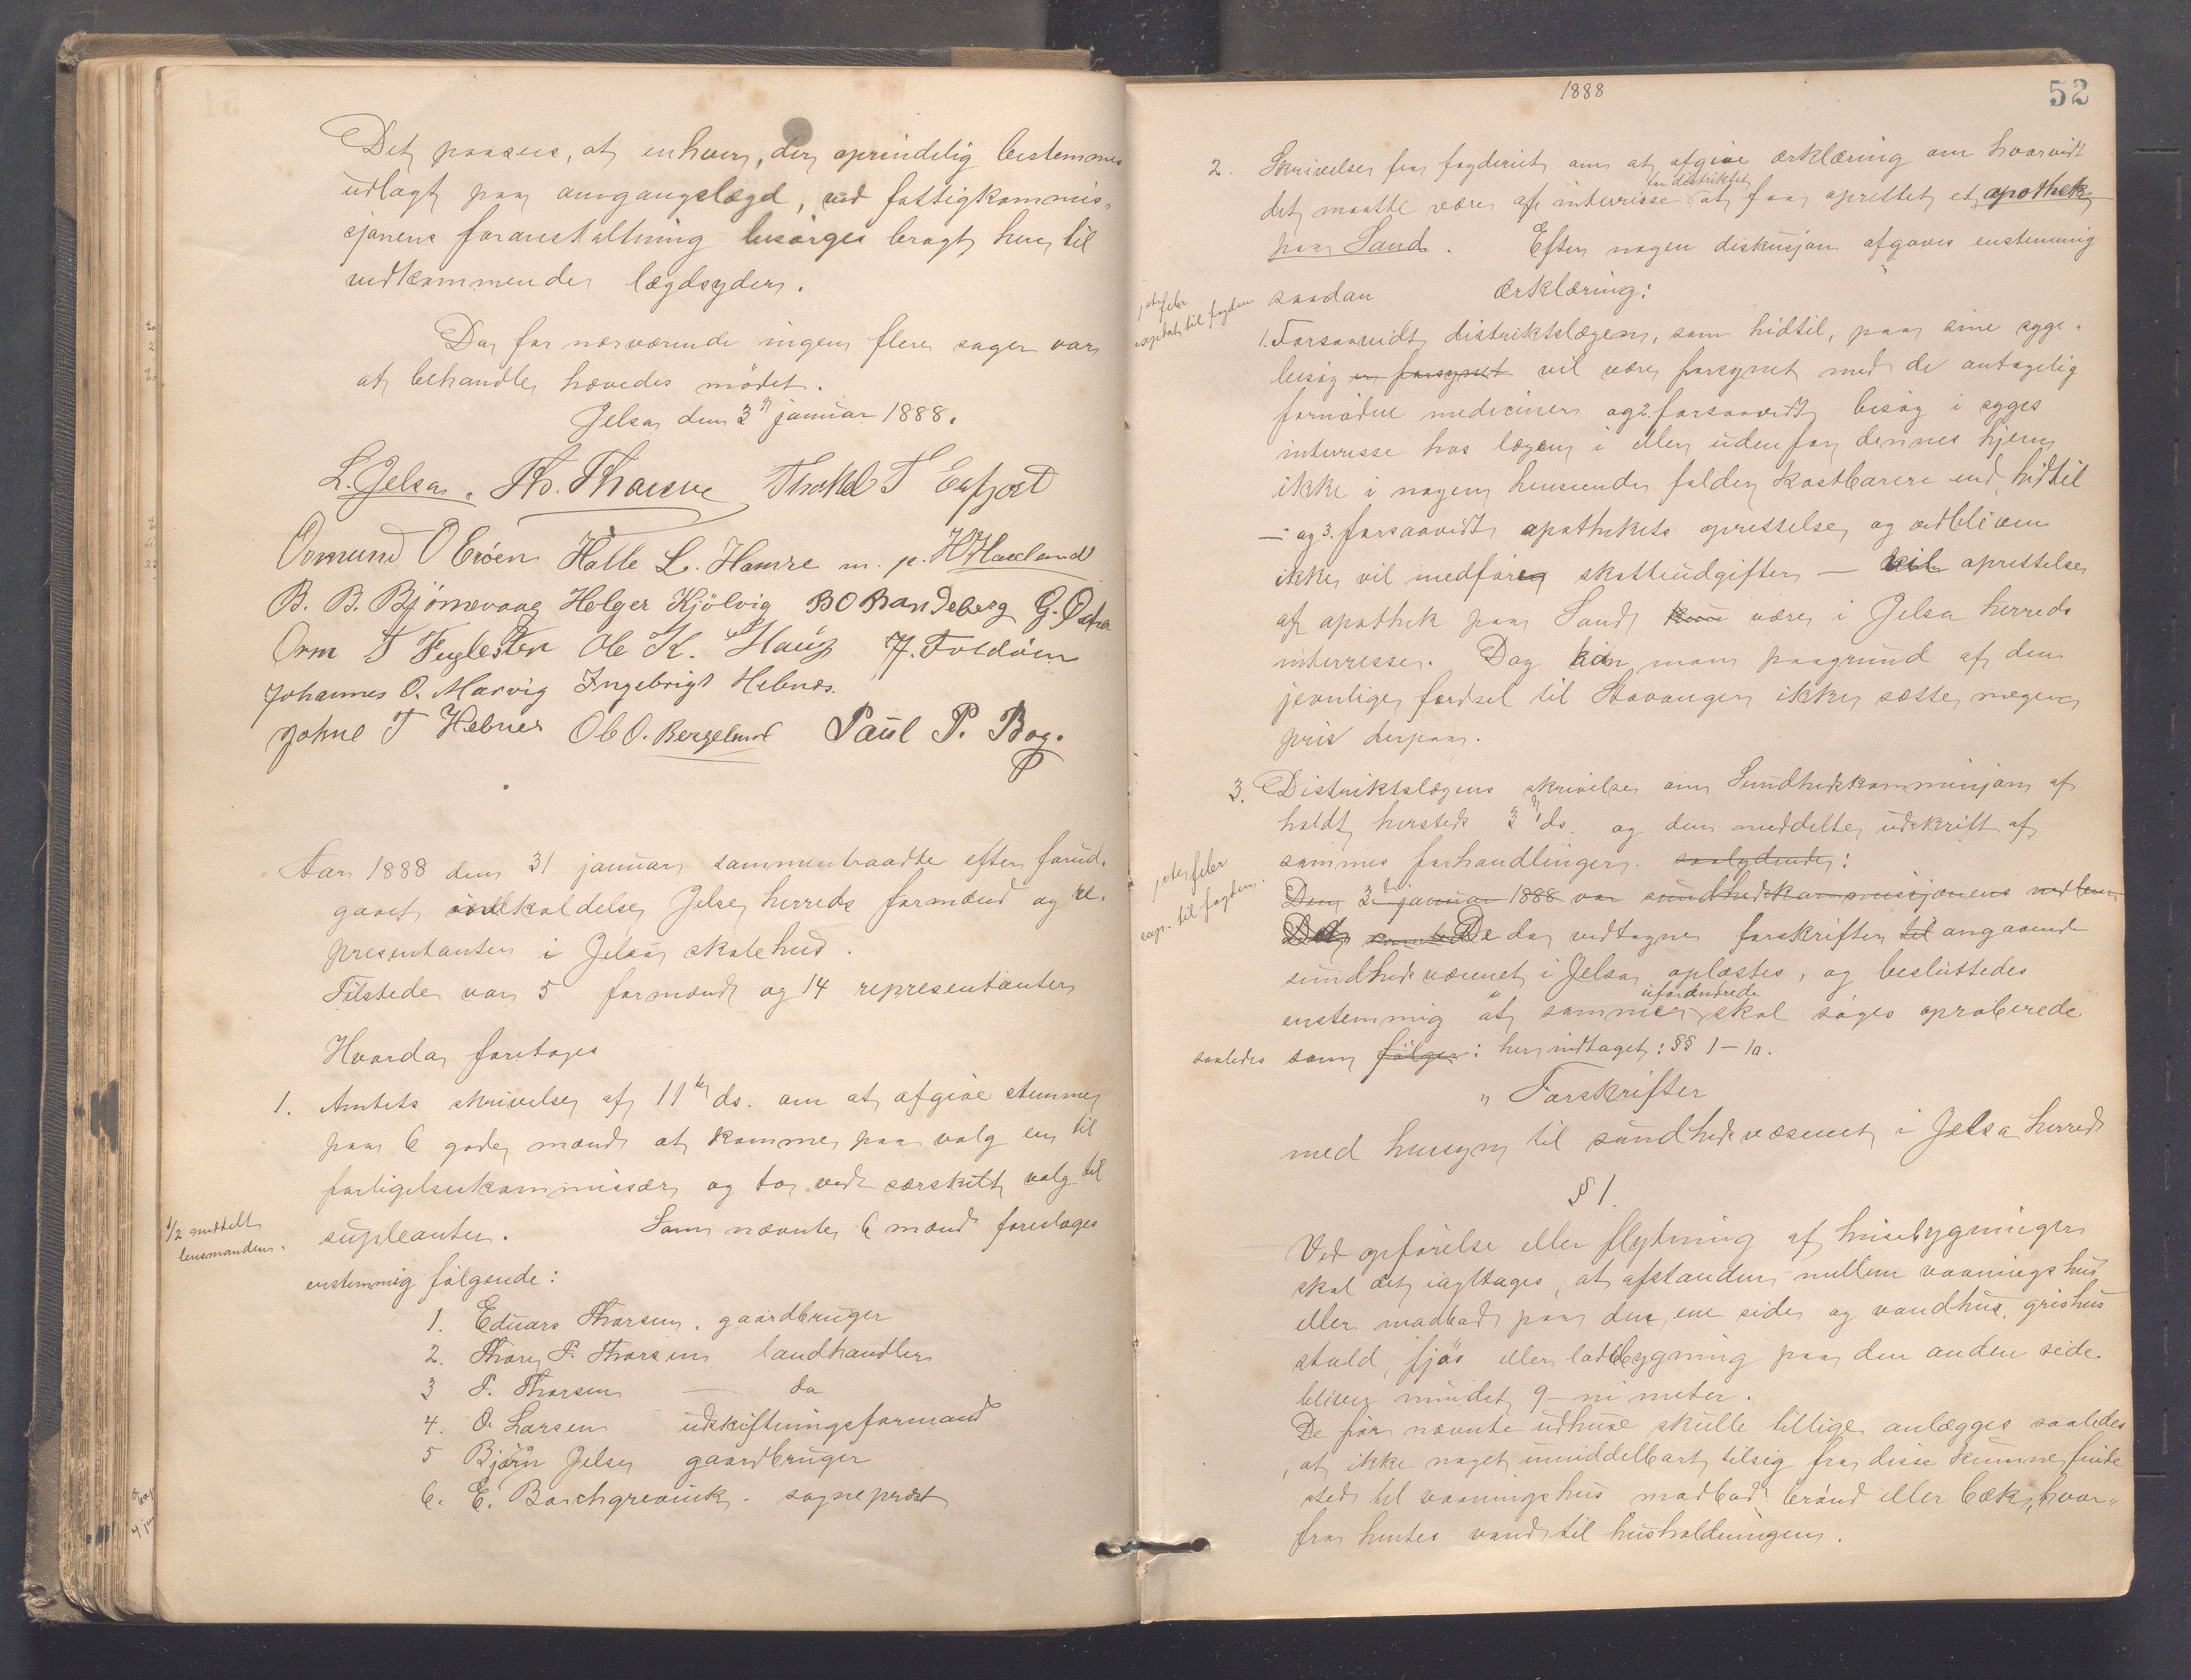 Det paasees, at enhver, der oprindelig bestemmes
udlagt paa omgangslægd, ved fattigkommis-
sjonens foranstaltning besørges bragt hen til
vedkommende lægdsyder.
Da for nærværende ingen flere sager var
at behandle, hævedes mødet.
Jelsa den 3die januar 1888.
L. Jelsa. Th. Thorsen Thorkel T Eefjort
Osmund O Erøen Halle L. Hamre m. p. H Haaland
B. B. Bjørnevaag Holger Kjølvig B O Brandeberg G. Østra
Orm T Fuglesten Ole K. Haug J. Foldøen
Johannes O. Marvig Ingebrigt Hebnes.
Johne T Hebnes Ole O. Bergeland Paul P. Bog.
Aar 1888 den 31 januar sammentraadte efter forud-
gaaet indkaldelse Jelse herreds formænd og re-
presentanter i Jelsa skolehus.
Tilstede var 5 formænd og 14 representanter
Hvorda foretoges
1. Amtets skrivelse af 11te ds. om at afgive stemme
paa 6 gode mænd at komme paa valg en til
forligelseskommissær og to ved særskilt valg til
1/2 meddelt
lensmanden.
supleanter. Som nævnte 6 mænd foresloges
enstemmig følgende:
1. Eduard Thorsen, gaardbruger
2. Thore P. Thorsen landhandler
3 P. Thorsen — do
4. O. Larsen udskiftningsformand
5 Bjørn Jelse gaardbruger
6. E. Borchgrevink. sogneprest
1888
52
2. Skrivelse fra fogderiet om at afgive erklæring om hvorvidt
for distriktet
det maatte være af interresse at faa oprettet et apothek
paa Sand. Efter nogen diskusjon afgaves enstemmig
1ste feber
expedert til fogden
saadan Erklæring:
1. Forsaavidt distriktslægen, som hidtil, paa sine syge-
besøg er forsynet vil være forsynet med de antagelig
fornødne mediciner og 2. forsaavidt besøg i syges
interresse hos lægen i eller udenfor dennes hjem
ikke i nogen henseende falder kostbarere end hidtil
— og 3. forsaavidt apothekets oprettelse og vedbliven
ikke vil medføreg skatteudgifter — vil oprettelse
af apothek paa Sand kun være i Jelsa herreds
interresse. Dog kan man paagrund af den
jevnlige færdsel til Stavanger ikke sætte megen
pris derpaa.
3. Distriktslægens skrivelse om Sundhedskommisjon af-
holdt hersteds 3die ds. og den meddelte udskrift af
sammes forhandlinger. saalydende:
1ste feber
exp. til fogden.
Den 3die januar 1888 var sundhedskommissjonens medlem-
De da vedtagne forskrifter til angaaende
sundhedsvæsenet i Jelsa oplæstes, og besluttedes
uforandrede
enstemmig at samme skal søges aproberede
saaledes som følger: her indtaget: §§ 1–10.
" Forskrifter
med hensyn til sundhedsvæsenet i Jelsa herred
§ 1.
Ved opførelse eller flytning af husebygninger
skal det iagttages, at afstanden mellem vaaningshus
eller madbod paa den ene side og vandhus, grishus
stald, fjøs eller ladebygning paa den anden side.
bliver mindst 9 – ni meter.
De før nævnte udhuse skulle tillige anlægges saaledes
, at ikke noget umiddelbart tilsig fra disse kunne finde
sted til vaaningshus madbod brønd eller bæk, hvor-
fra hentes vand til husholdningen.